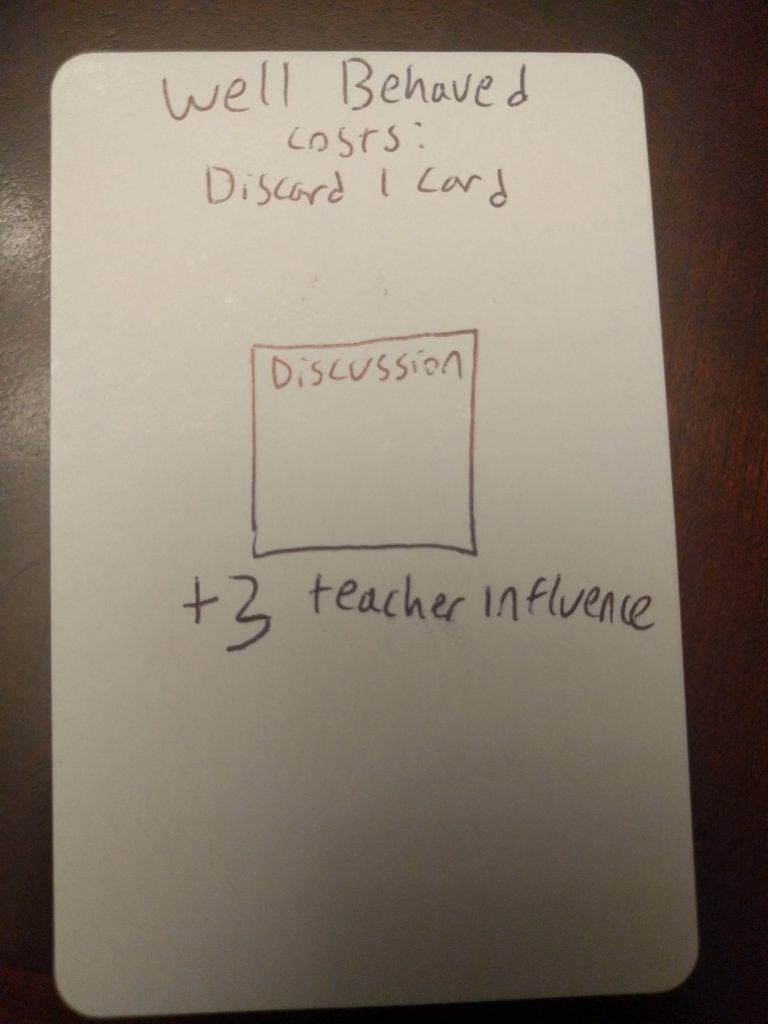 Well Behaved
Costs:
Discard 1 Card
Discussion
+3 teacher influence